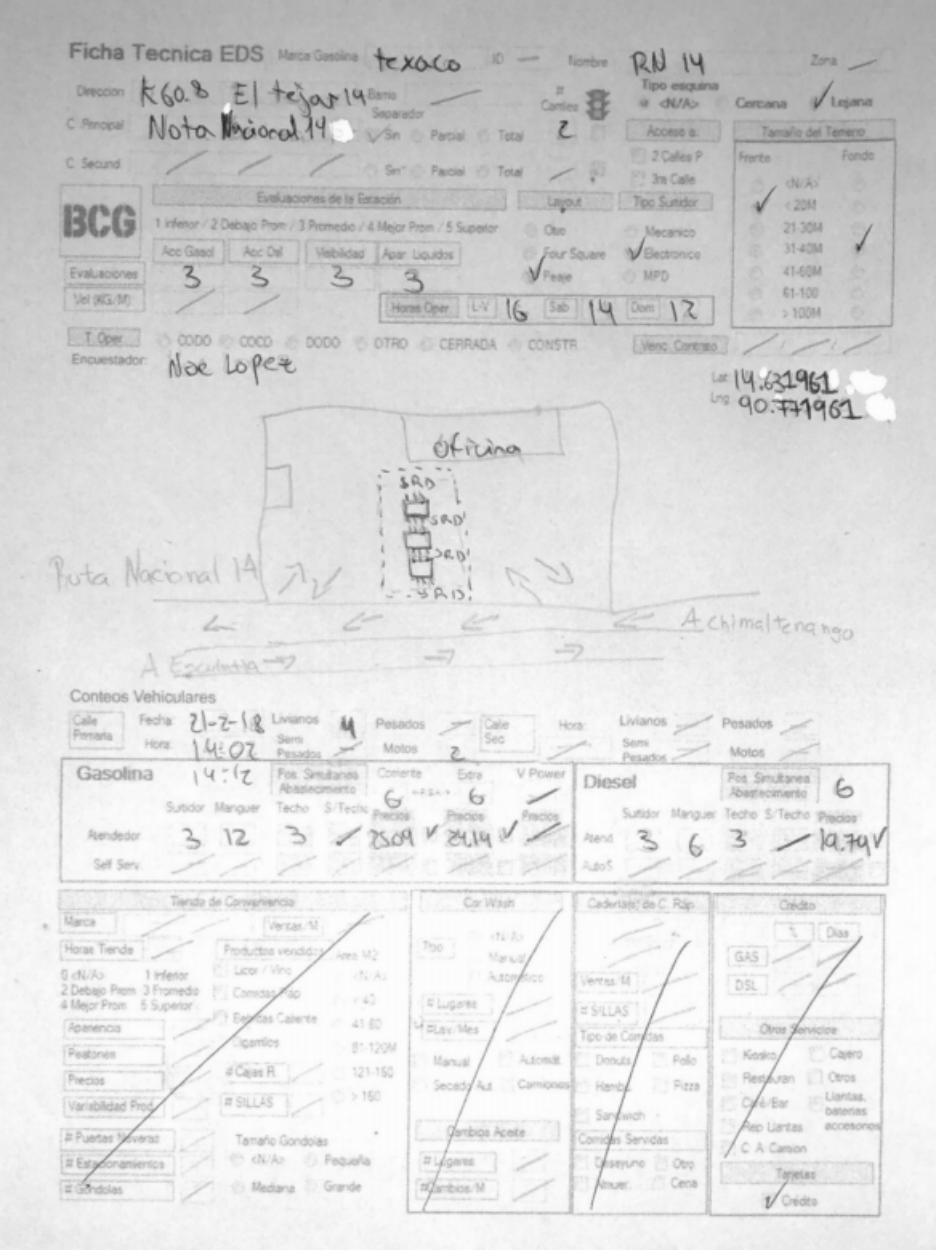 Ficha Tecnica EDS Marca Gasolina texaco ID — Nombre RN 14 Zona
Direccion K60.8 El tejar 14 Barrio # Carriles Tipo esquina <N/A> Cercana ✓ Lejana
C. Principal Nacional 14 Separador ✓ Sin Parcial Total 2 Acceso a: Tamaño del Terreno
2 Calles P Frente Fondo
C. Secund Sin Parcial Total 3ra Calle <N/A>
BCG Evaluaciones de la Estación Layout Tipo Surtidor ✓ < 20M
1 Inferior / 2 Debajo Prom / 3 Promedio / 4 Mejor Prom / 5 Superior Otro Mecanico 21-30M
Acc Gasol Acc Dsl Visibilidad Apar. Liquidos Four Square ✓ Electronico 31-40M ✓
Evaluaciones 3 3 3 3 ✓ Peaje MPD 41-60M
61-100
Vel (KG/M) Horas Oper L-V 16 Sab 14 Dom 12 > 100M
T. Oper CODO COCO DODO OTRO CERRADA CONSTR Venc. Contrato
Encuestador: Noe Lopez
Lat 14.631961
Lng 90.771961
Oficina
SRD
SRD
SRD
SRD
Ruta Nacional 14
A chimaltenango
A Escuintla
Conteos Vehiculares
Calle Primaria Fecha 21-2-18 Livianos 4 Pesados — Calle Sec Hora: Livianos Pesados
Hora: 14:02 Semi Pesados — Motos 2 Semi Pesados Motos
Gasolina 14:12 Pos. Simultanea Abastecimiento Corriente 6 Extra 6 V Power — Diesel Pos. Simultanea Abastecimiento 6
Surtidor Manguer Techo S/Techo Precios Precios Precios Surtidor Manguer Techo S/Techo Precios
Atendedor 3 12 3 — 25.09 ✓ 24.14 ✓ Atend 3 6 3 — 19.79 ✓
Self Serv. Auto S
Tienda de Conveniencia Car Wash Cadena/s de C. Ráp. Crédito
Marca Ventas/M % Dias
Horas Tienda Productos vendidos Area M2 Tipo <N/A> GAS
0 <N/A> 1 Inferior Licor / Vino <N/A> Manual
2 Debajo Prom 3 Promedio Comidas Ráp < 40 Automático Ventas/M DSL
4 Mejor Prom 5 Superior Bebidas Caliente 41-80 # Lugares # SILLAS
Apariencia Cigarrillos 81-120M # Lav./Mes Tipo de Comidas Otros Servicios
Peatones # Cajas R. 121-150 Manual Automát. Donuts Pollo Kiosko Cajero
Precios > 150 Secado Aut Camiones Hambu. Pizza Restauran Otros
Variabilidad Prod. # SILLAS Sandwich Café/Bar Llantas, baterias accesorios
# Puertas Neveras Tamaño Gondolas Cambios Aceite Comidas Servidas Rep Llantas
# Estacionamientos <N/A> Pequeña # Lugares Desayuno Otro C. A. Camion
# Gondolas Mediana Grande # Cambios/M Almuer. Cena Tarjetas
✓ Crédito